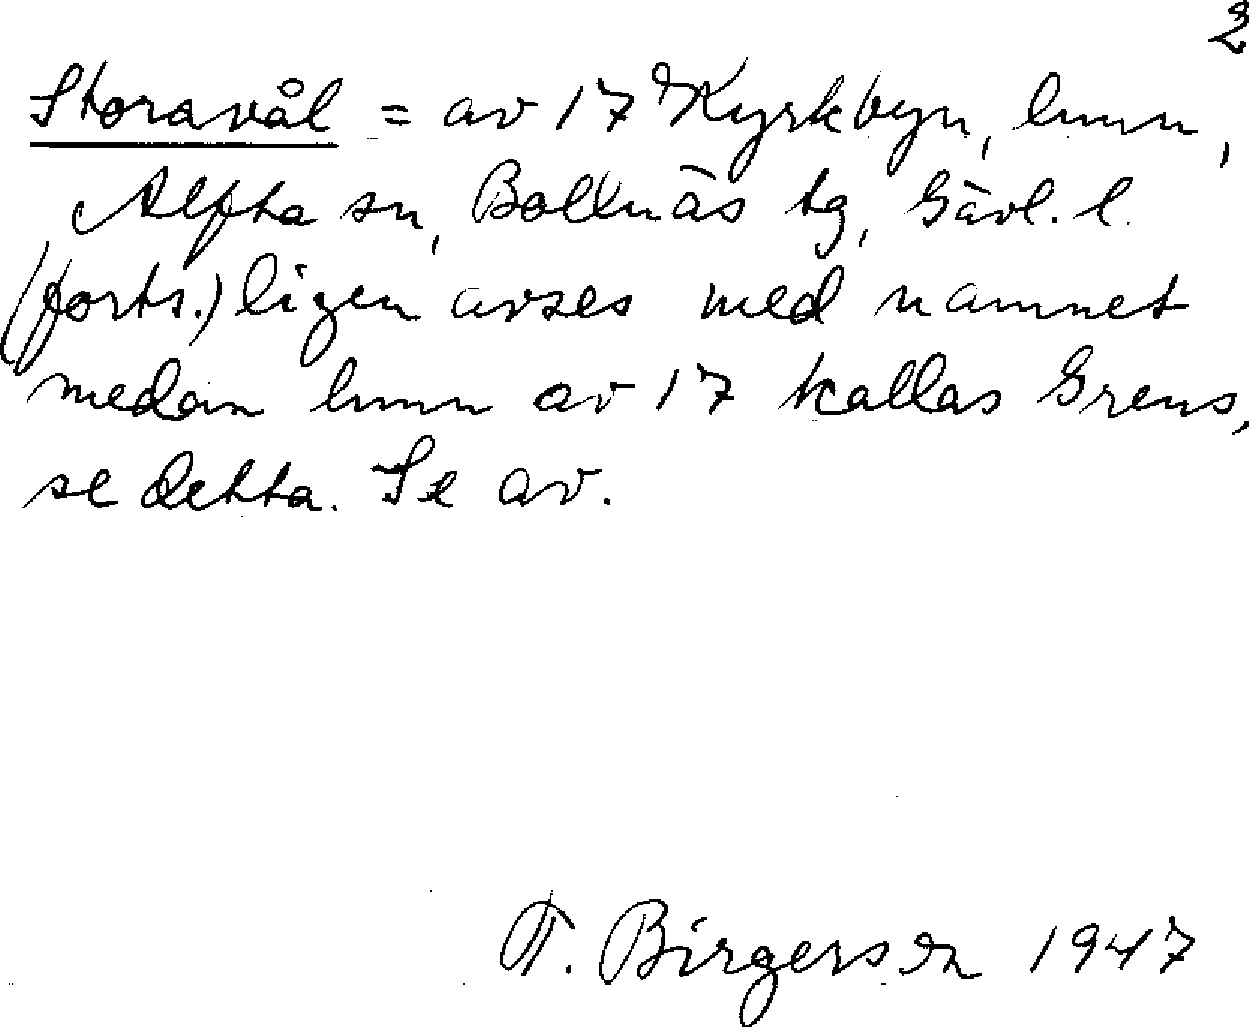 2
Storavål = av 17 Kyrkbyn, hmn,
Alfta sn, Bollnäs tg, Gävl. l.
(forts.) ligen avses med namnet
medan hmn av 17 kallas Grens,
se detta. Se av.
T. Birgersen 1947